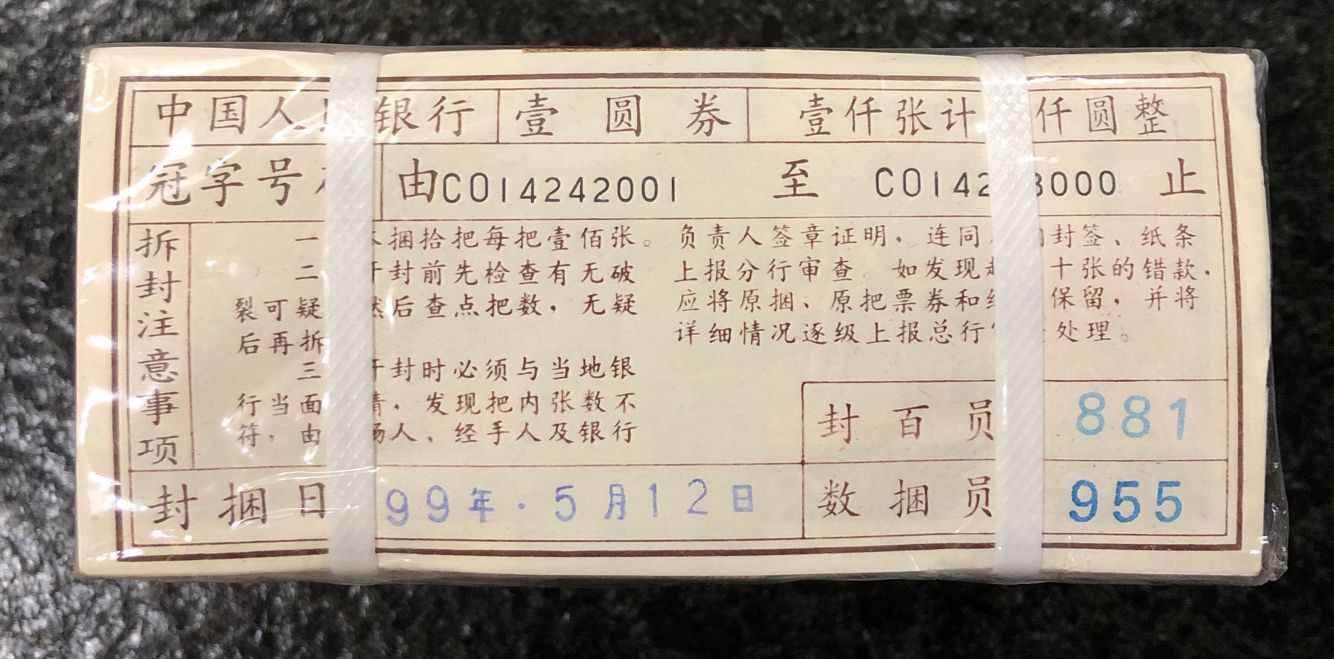 中国人 银行 壹圆券 壹仟张计 仟圆整
冠字号 由CO14242001 至 CO142 3000 止
拆封注意事项
一 捆拾把每把壹佰张。
二 封前先检查有无破
裂可疑 后查点把数，无疑
后再拆
三 封时必须与当地银
行当面 ，发现把内张数不
符，由 人、经手人及银行
负责人签章证明，连同 封签、纸条
上报分行审查。如发现 十张的错款，
应将原捆、原把票券和 保留，并将
详细情况逐级上报总行 处理。
封百员 881
封捆日 99年·5月12日
数捆员 955